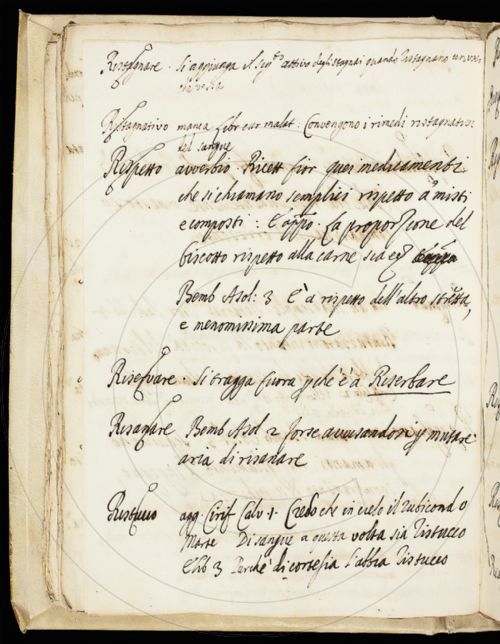 Ristagnare. Si aggiunga il sig.to attivo degli stagnai quando ristagnano un vaso
Ristagnativo manca. libr cur malat: Convengono i rimedi ristagnativi
del sangue
Rispetto avverbio. Ricett fior quei medicamenti
che si chiamano semplici rispetto a' misti
e composti : E app.o La proporzione del
biscotto rispetto alla carne sia
Bemb Asol: 3 È a rispetto dell'altro stretta,
e menomissima parte
Riserbare. Si tragga fuora p che è a Reserbare
Risanare Bemb Asol 2 forse avvisandosi p mutare
aria di risanare
Ristucco agg. Cirif Calv 1. Credo che in cielo il rubicondo
Marte Di sangue a questa volta sia ristucco
E lib 3 Perchè di cortesia l'abbia ristucco